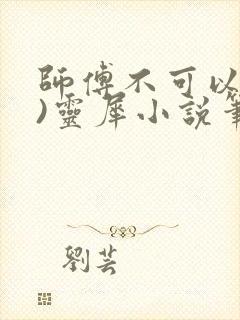 師傅不可以
)靈犀小說筆
劉芸